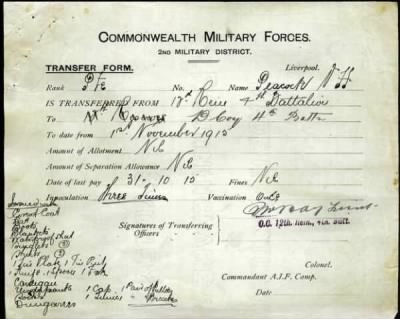 COMMONWEALTH MILITARY FORCES.
2ND MILITARY DISTRICT.
TRANSFER FORM. Liverpool.
Rank Pte No. Name Peacock
IS TRANSFERRED FROM 12th Rein 4th Battalion
To D Coy 4th Battn
To date from 1st November 1915
Amount of Allotment Nil
Amount of Separation Allowance Nil
Date of last pay 31-10-15 Fines Nil
Inoculation Three Times Vaccination Once
Lieut
O.C. 12th Rein. 4th Batt.
Signatures of Transferring
Officers
Colonel
Commandant A.I.F. Camp.
Date
Great Coat
Hat
Boots
Blankets
Waterproof Sheet
Singlets 2
Shirts 2
1 Tin Plate 1 Tin
1 Knife 1 Spoon 1 Fork
Cardigan
Underpants 1 Cap 1 Pair of
Socks Breeches
Dungarees